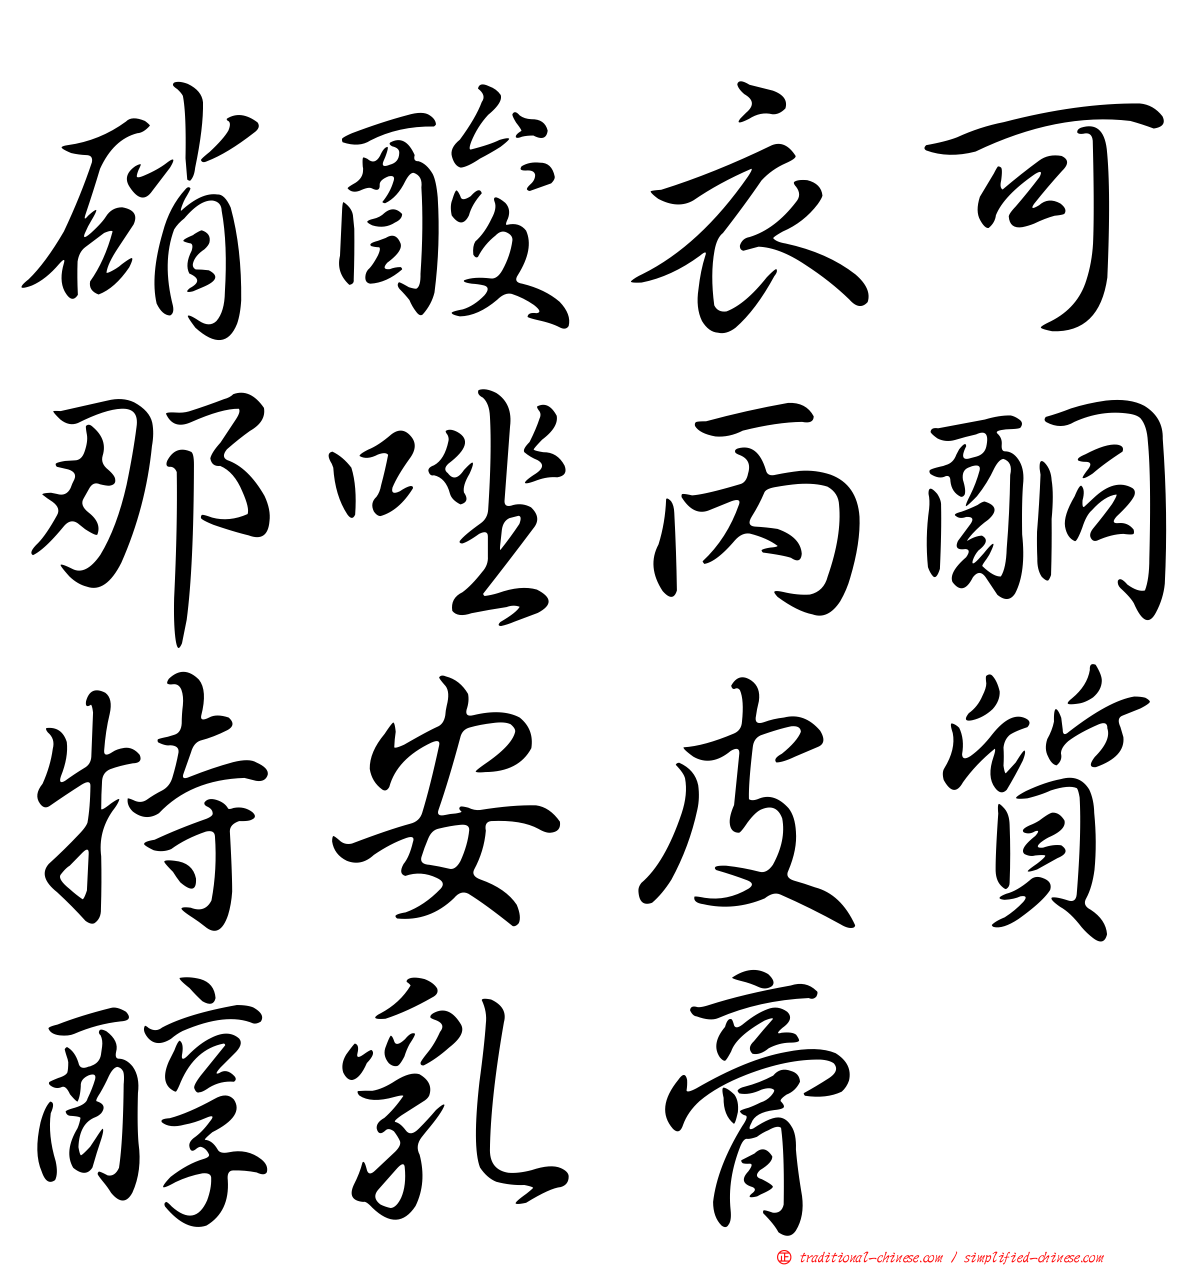 硝酸衣可
那唑丙酮
特安皮質
醇乳膏
㊣ traditional-chinese.com / simplified-chinese.com